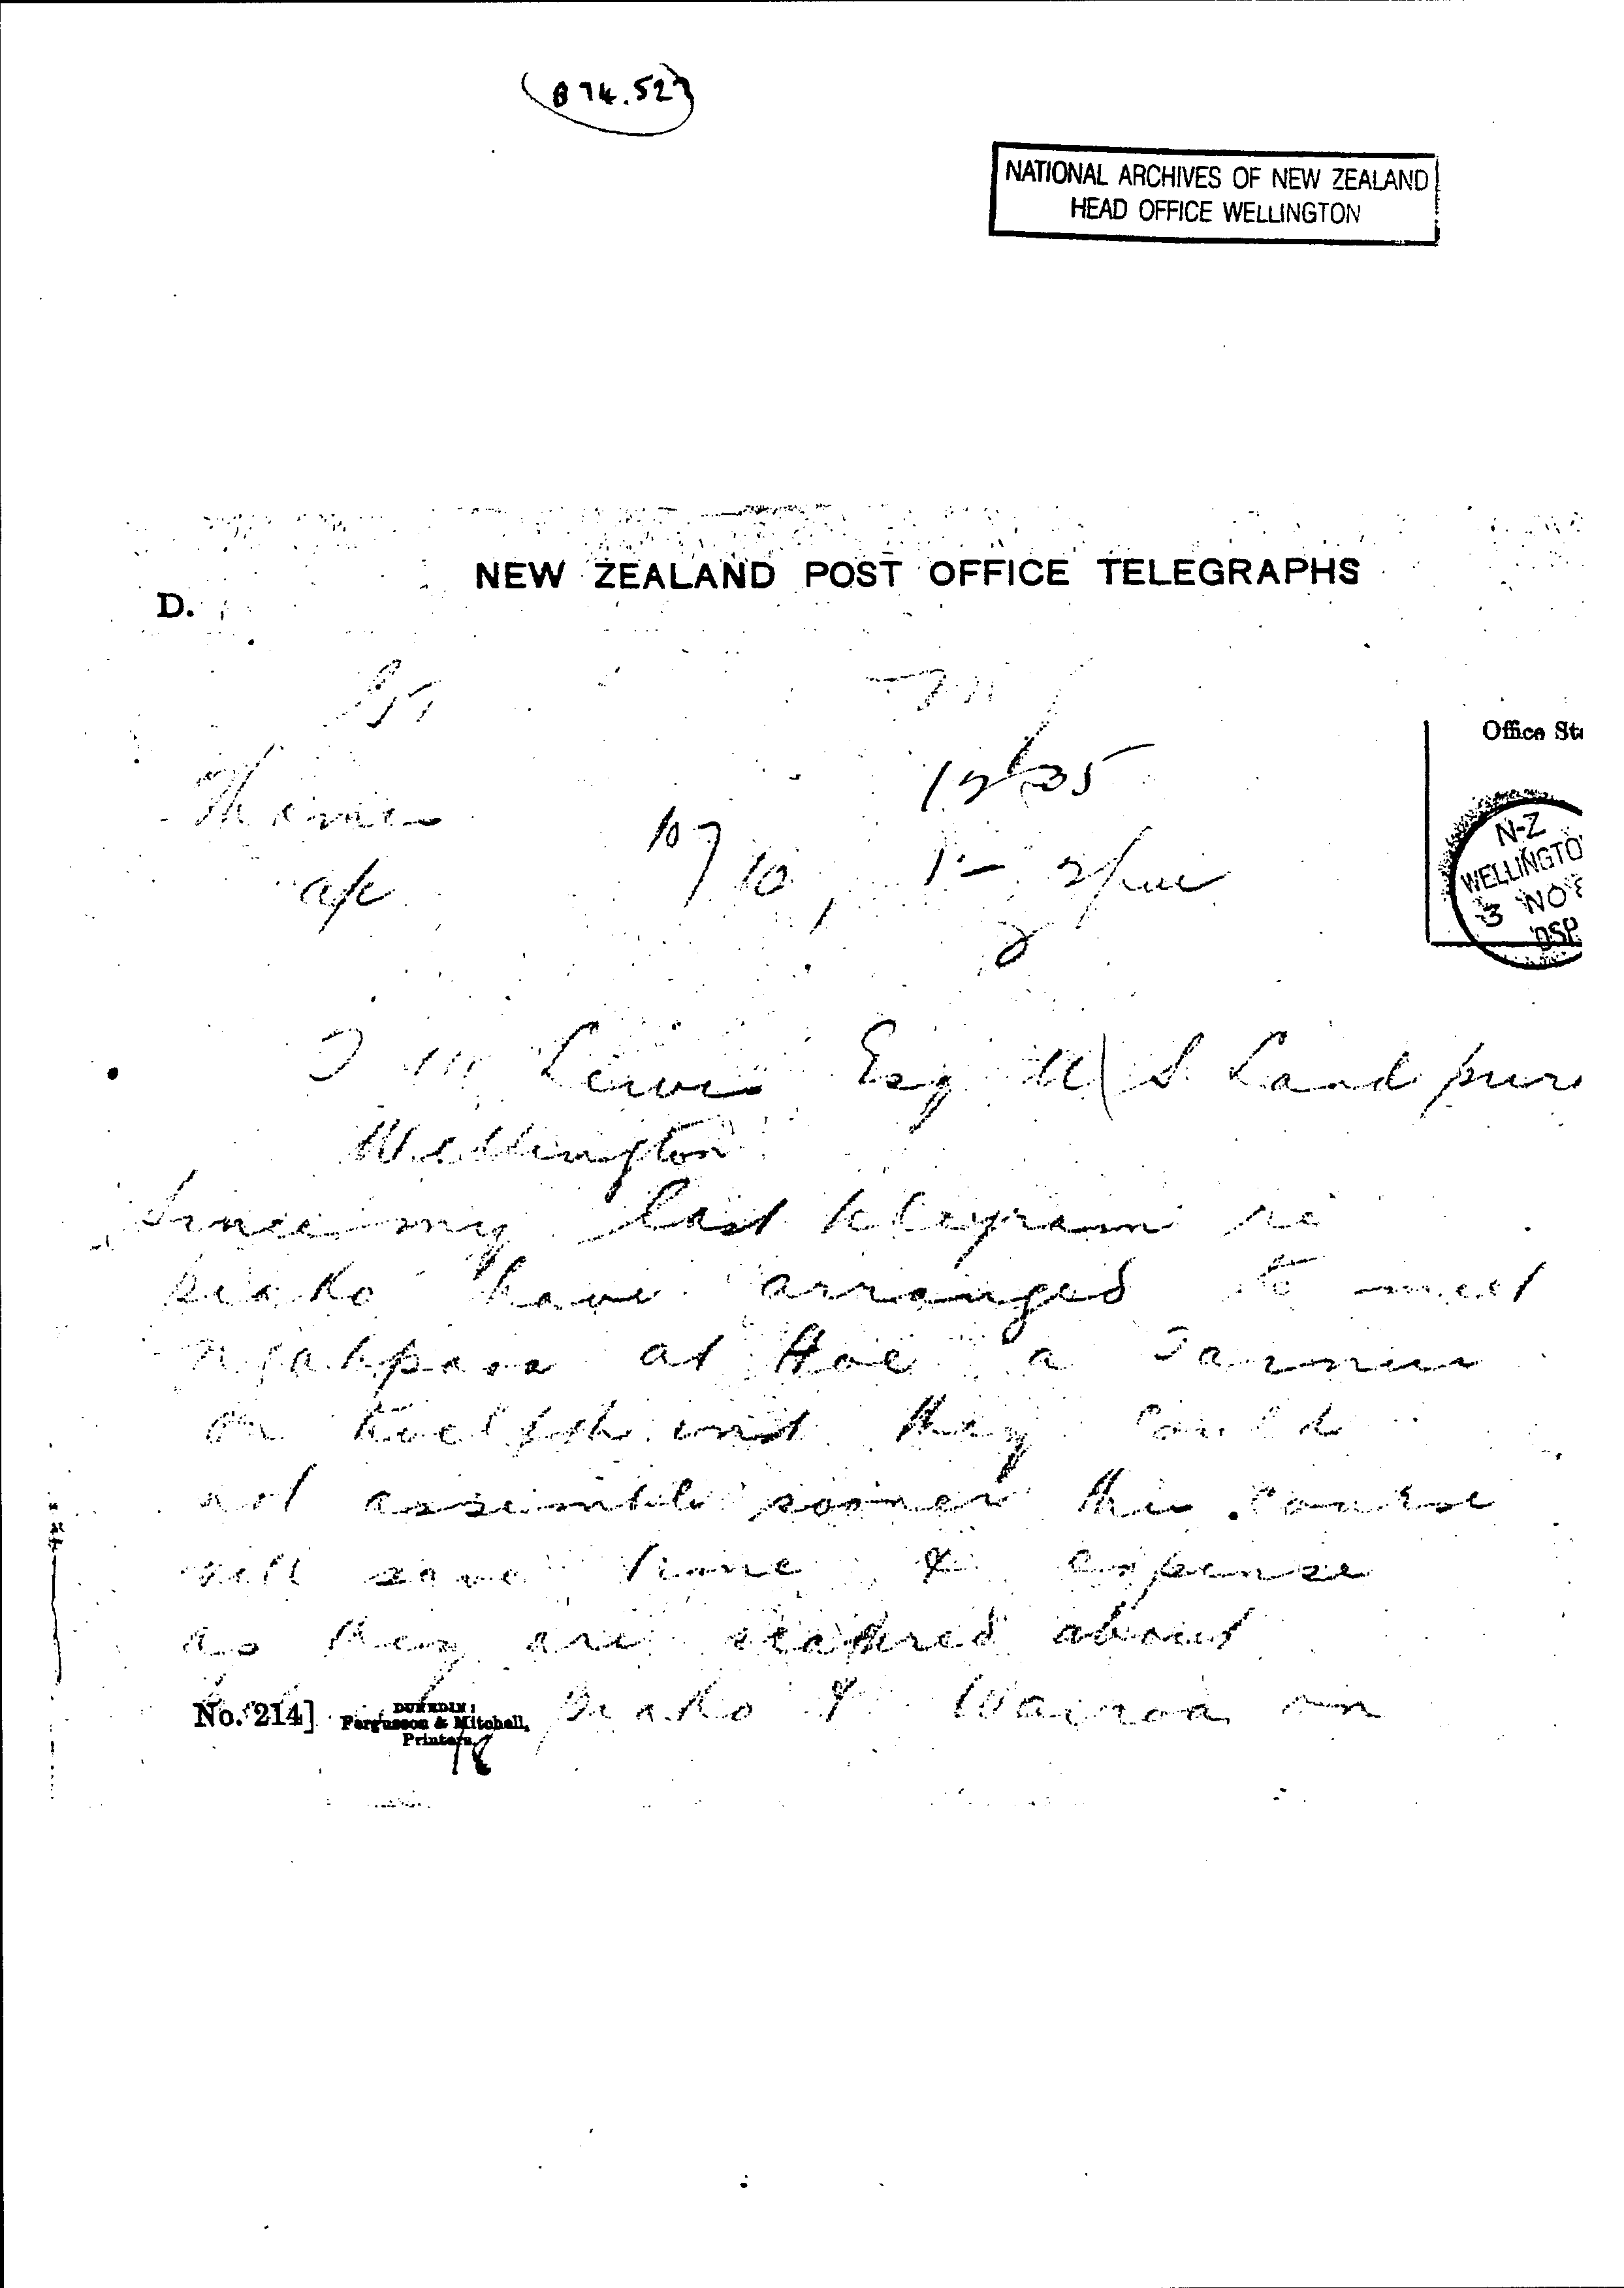 874.527
NATIONAL ARCHIVES OF NEW ZEALAND
HEAD OFFICE WELLINGTON
NEW ZEALAND POST OFFICE TELEGRAPHS
D.
Office Sta
12/35
Thames
N-Z
WELLINGTO
3 NO 8
DSP
T W Lewis Esq U/S Land purc
Wellington
Since my last telegram re
piako have arranged to meet
at Hoe a Tainui
on twelfth inst they could
not assemble sooner this course
will save time & expense
as they are scattered about
piako & Wairoa in
No. 214]
DUNEDIN:
Fergusson & Mitchell,
Printers.